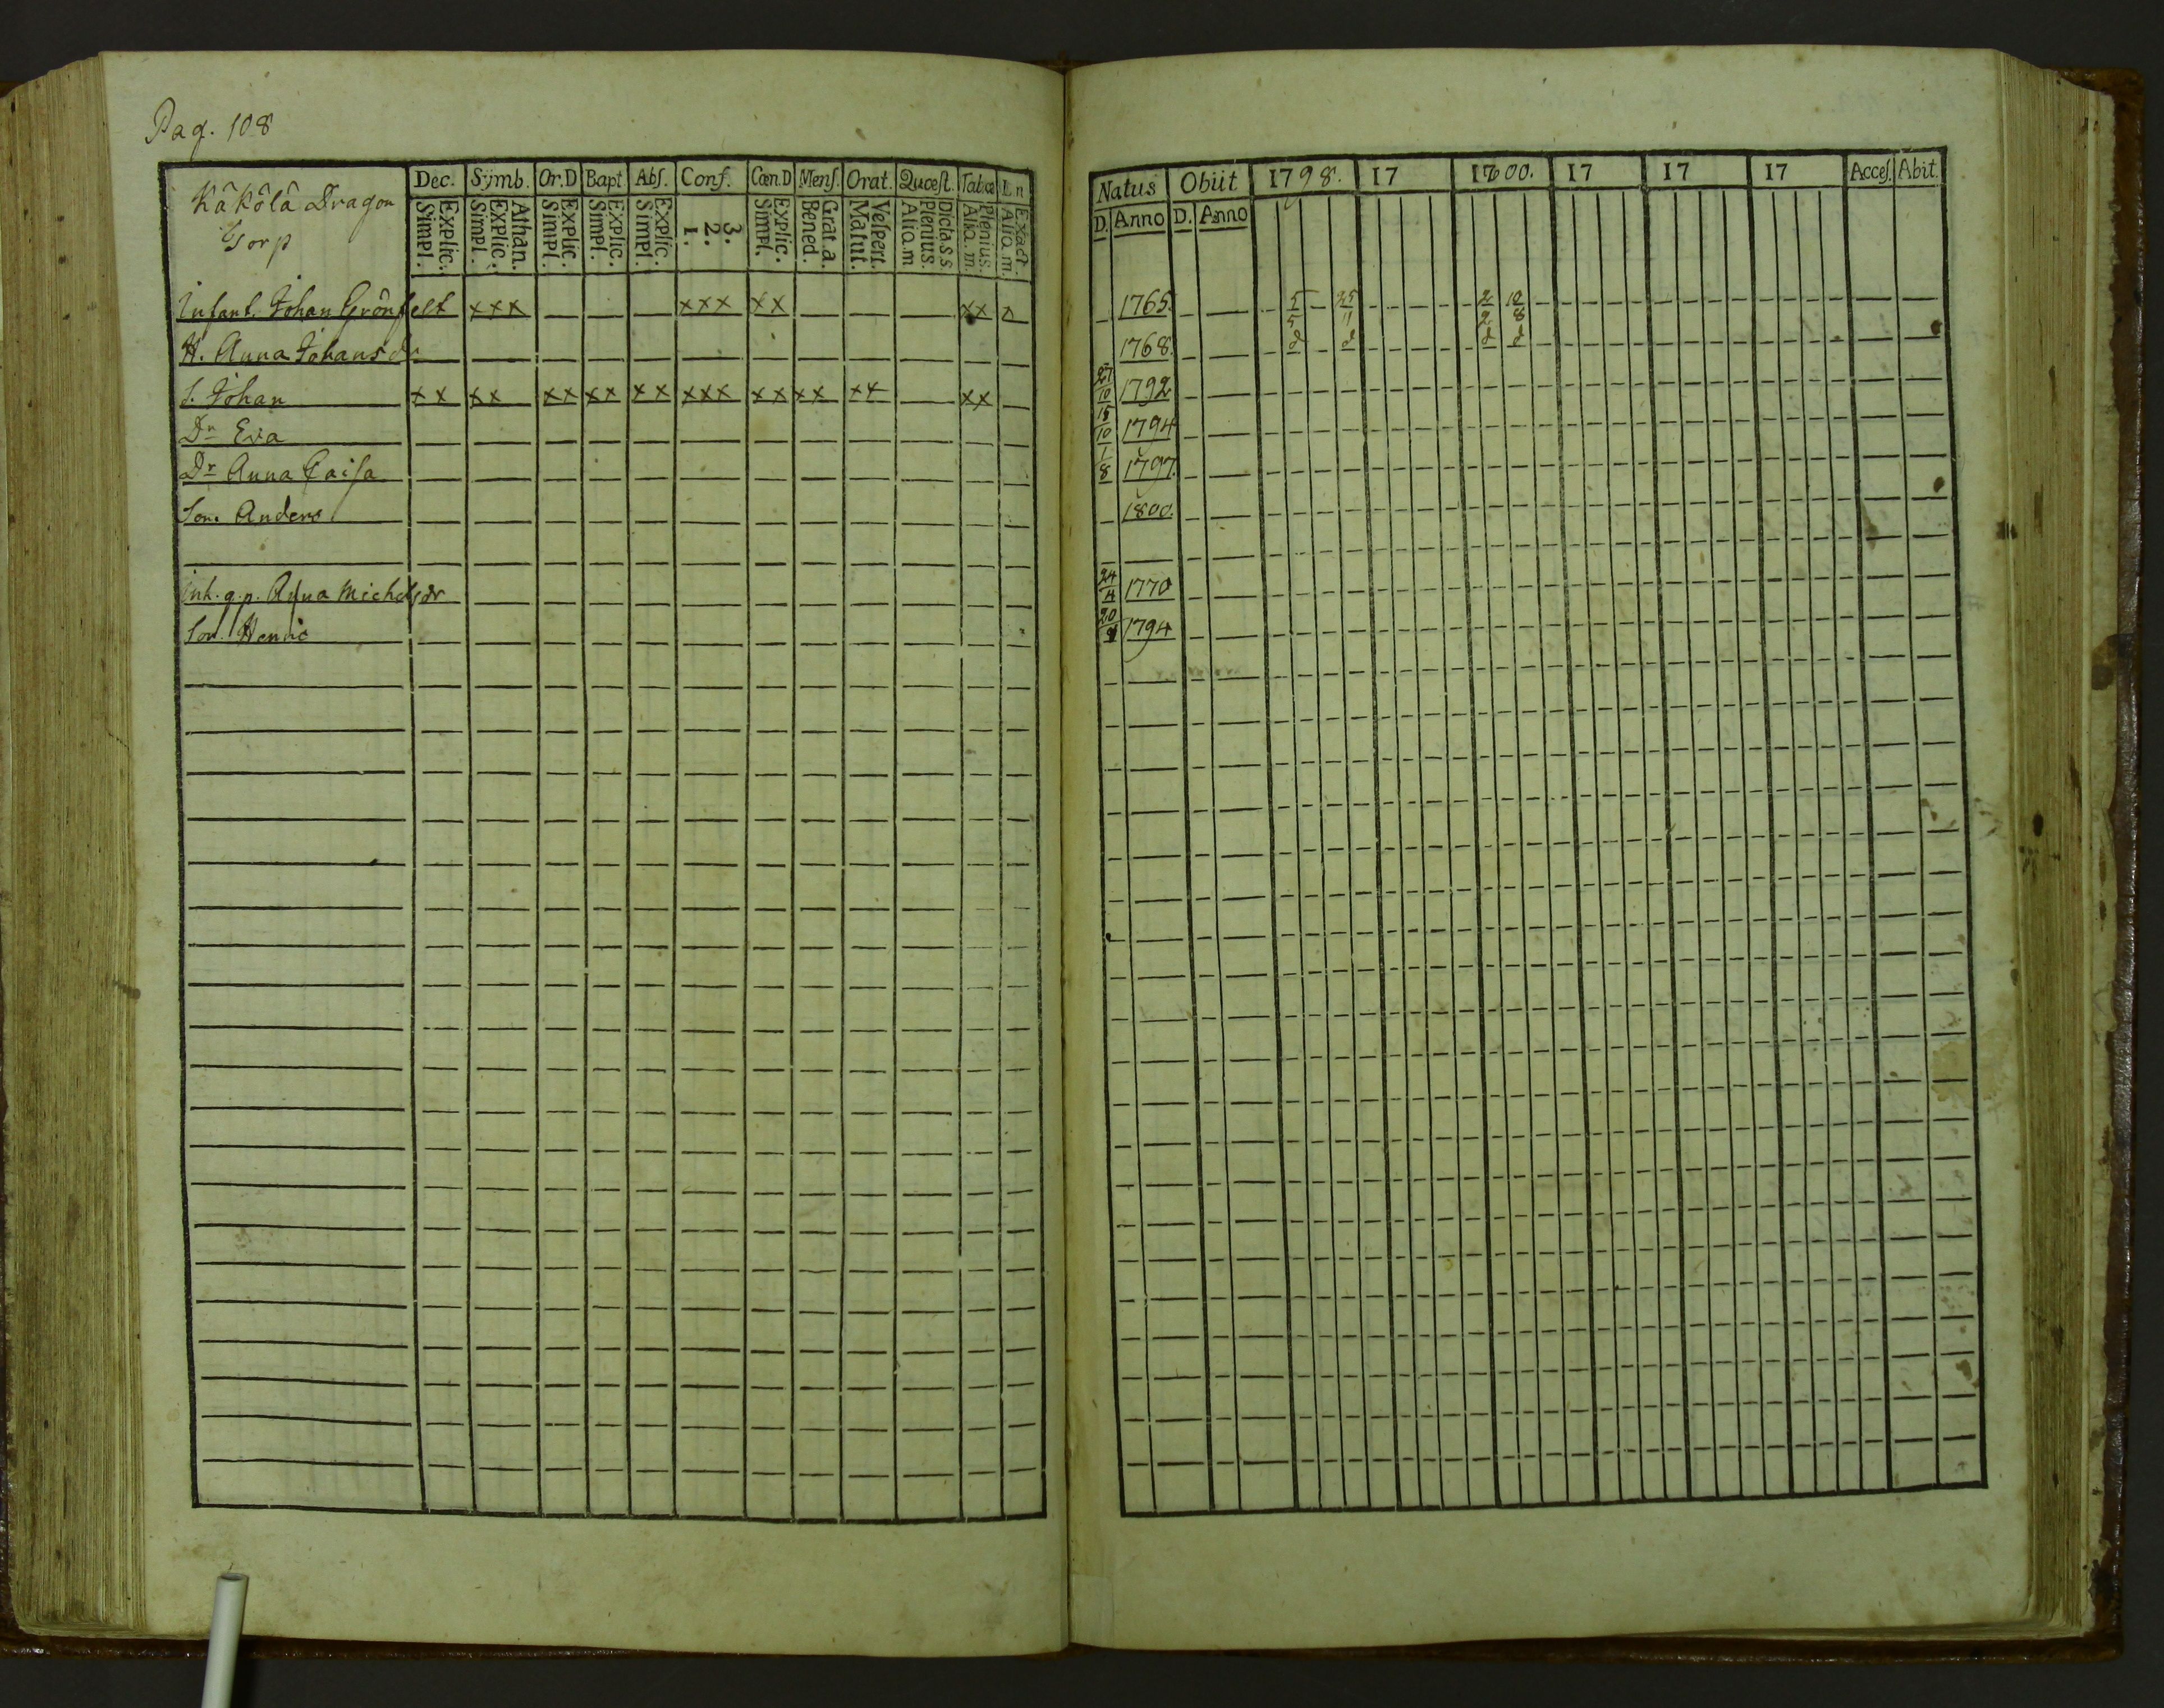 Pag. 108
Kåkölä Dragon
Torp
Dec. Symb. Or.D Bapt. Abs. Conf. Cœn.D Mens. Orat. Quæst. Tab.œ
Explic. Simpl. Athan. Explic. Simpl. Explic. Simpl. Explic. Simpl. Explic. Simpl. 3. 2. 1. Explic. Simpl. Grat.a. Bened. Vespert. Matut. Dicta s.s. Plenius. Aliq.m Plenius. Aliq.m. Exact. Aliq.m.
Infant. Johan Grönfelt xxx xxx xx xx x
H. Anna Johansdr
S. Johan xx xx xx xx xx xxx xx xx xx xx
Dr Eva
Dr Anna Caisa
Son. Anders
Inh. q.p. Anna Michelsdr
Son. Henric
Natus Obiit 1798. 17 1800. 17 17 17 Acces. Abit.
D. Anno D. Anno
1765. 5/5 25/11 2/2 10/8
1768. d d d d
27/10 1792
15/10 1794
1/8 1797.
1800.
24/4 1770
20/9 1794